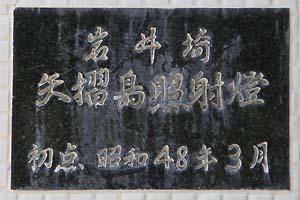 岩井埼
矢摺島照射燈
初点 昭和48年3月